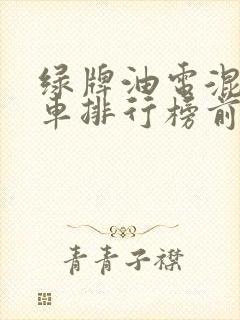 绿牌油电混
车排行榜前
青青子襟